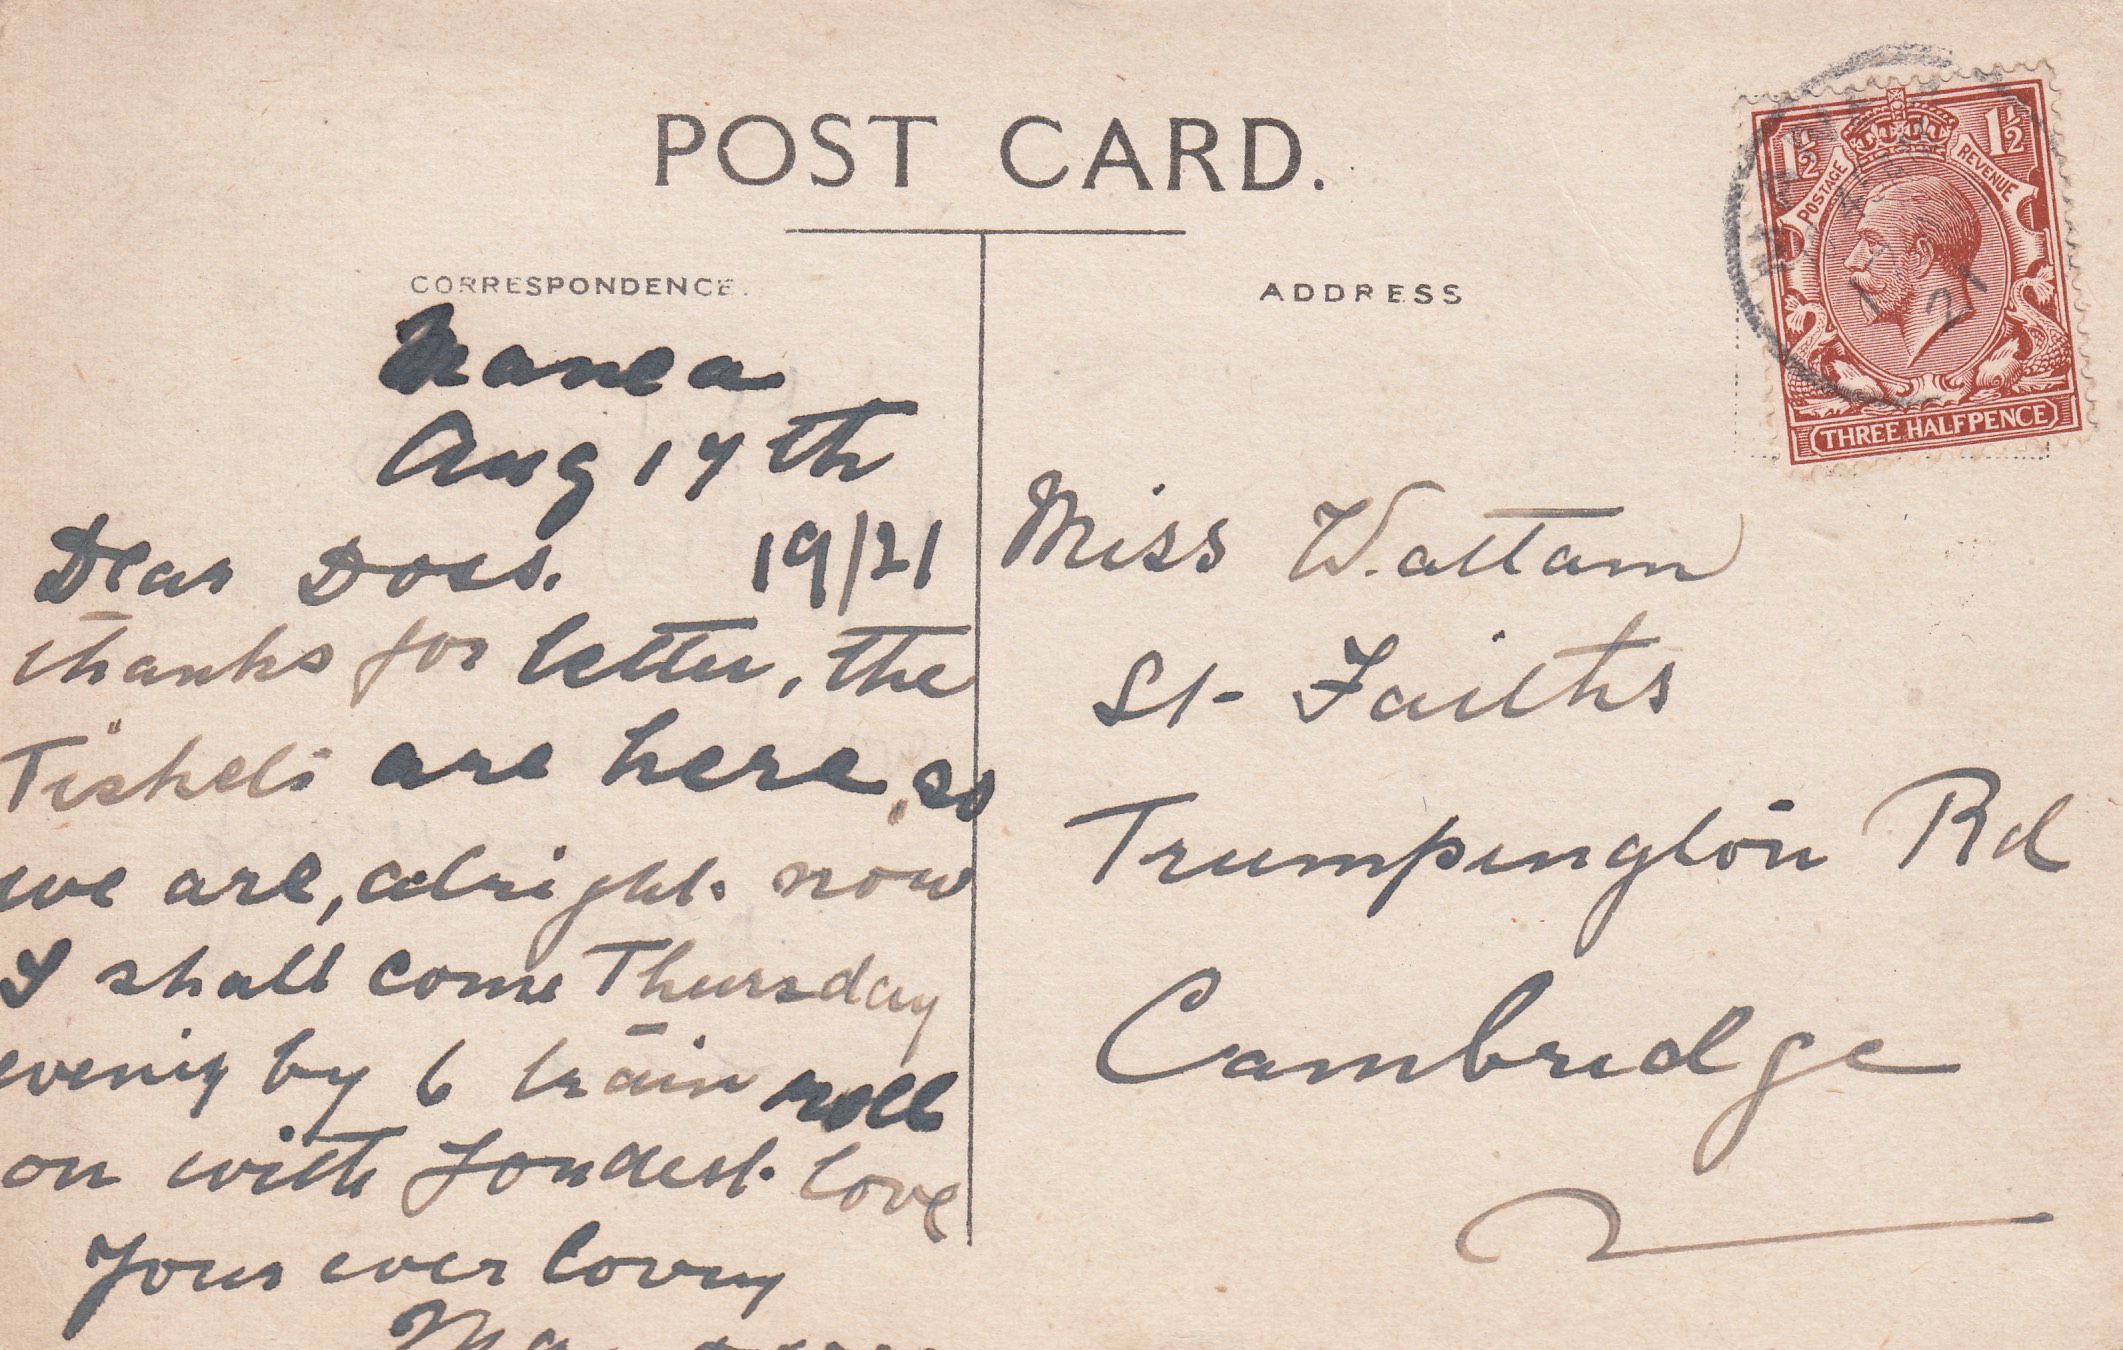 POST CARD.
CORRESPONDENCE.
ADDRESS
1½
1½
POSTAGE
REVENUE
21
THREE HALFPENCE
Manea
Aug 17th
19/21
Dear Doss.
thanks for letter, the
Tickets are here, so
we are, alright. now
I shall come Thursday
evenig by 6 train roll
on with fondest love
Your ever loving
Miss Wattam
St Faiths
Trumpington Rd
Cambridge